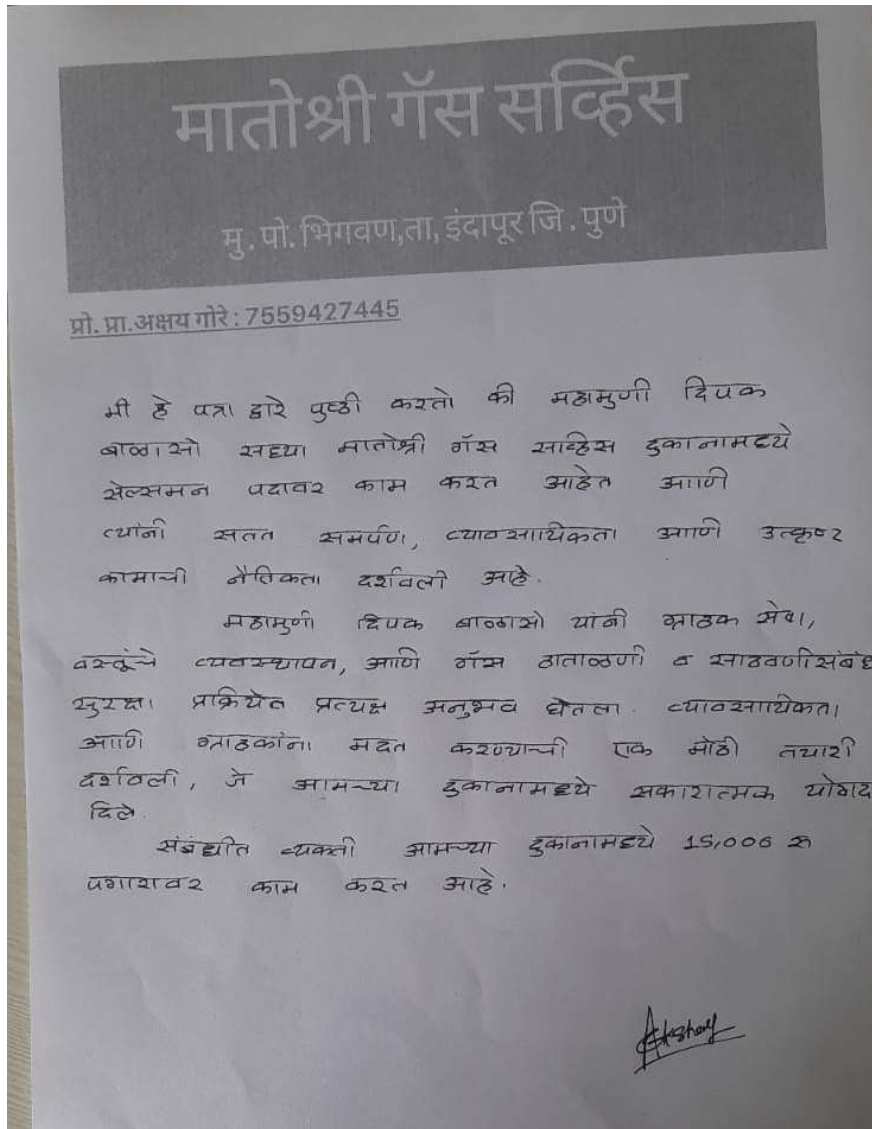 मातोश्री गॅस सर्व्हिस
मु. पो. भिगवण,ता, इंदापूर जि. पुणे
प्रो. प्रा.अक्षय गोरे : 7559427445
मी हे पत्रा द्वारे पुष्ठी करतो की महामुणी दिपक
बाळासो सध्या मातोश्री गॅस सर्व्हिस दुकानामध्ये
सेल्समन पदावर काम करत आहेत आणि
त्यांनी सतत समर्पण, व्यावसायिकता आणि उत्कृष्ट
कामाची नैतिकता दर्शवली आहे.
महामुणी दिपक बाळासो यांनी ग्राहक सेवा,
वस्तूंचे व्यवस्थापन, आणि गॅस हाताळणी व साठवणीसंबंध
सुरक्षा प्रक्रियेत प्रत्यक्ष अनुभव घेतला. व्यावसायिकता
आणि ग्राहकांना मदत करण्याची एक मोठी तयारी
दर्शवली, जे आमच्या दुकानामध्ये सकारात्मक योगद
दिले.
संबंधीत व्यक्ती आमच्या दुकानामध्ये 15,000 रु
पगारावर काम करत आहे.
Akshay